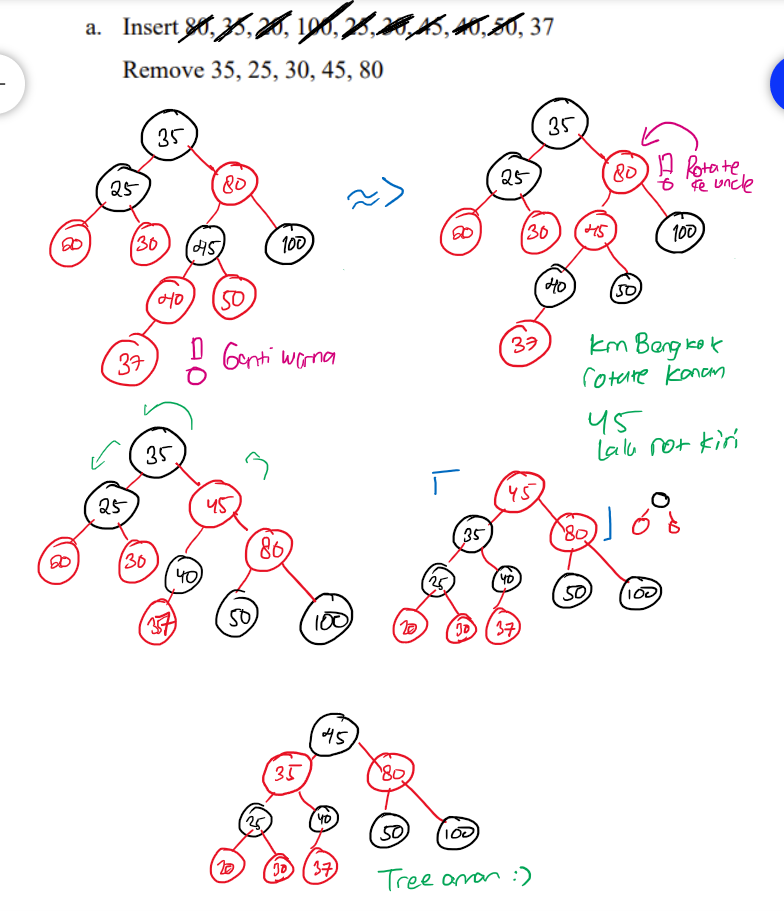 a. Insert 80, 35, 20, 100, 25, 30, 45, 40, 50, 37
Remove 35, 25, 30, 45, 80
35
25
80
20
30
45
100
40
50
37
Ganti warna
≈>
35
25
80
Rotate
ke uncle
20
30
45
100
40
50
37
km Bengkok
rotate kanan
45
lalu rot kiri
35
25
45
20
30
40
80
37
50
100
45
35
80
25
40
50
100
20
30
37
45
35
80
25
40
50
100
20
30
37
Tree aman :)